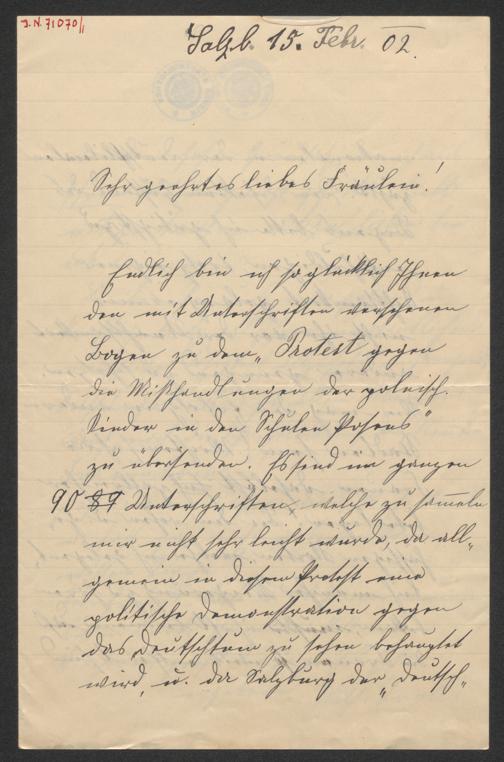 J.N. 71070/1
Salzb. 15. Febr. 02.
Sehr geehrtes liebes Fräulein!
Endlich bin ich so glücklich Ihnen
den mit Unterschriften versehenen
Bogen zu dem „Protest gegen
die Mißhandlungen der polnisch.
Kinder in den Schulen Posens"
zu übersenden. Es sind im ganzen
90 89 Unterschriften, welche zu sammeln
mir nicht sehr leicht wurde, da all„
gemein in diesem Protest eine
politische Demonstration gegen
das Deutschtum zu sehen behauptet
wird, u. da Salzburg der „Deutsch„